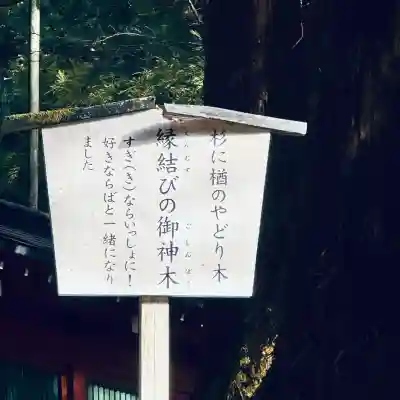 杉に楢のやどり木
縁結びの御神木
すぎ(き)ならいっしょに!
好きならばと一緒になり
ました